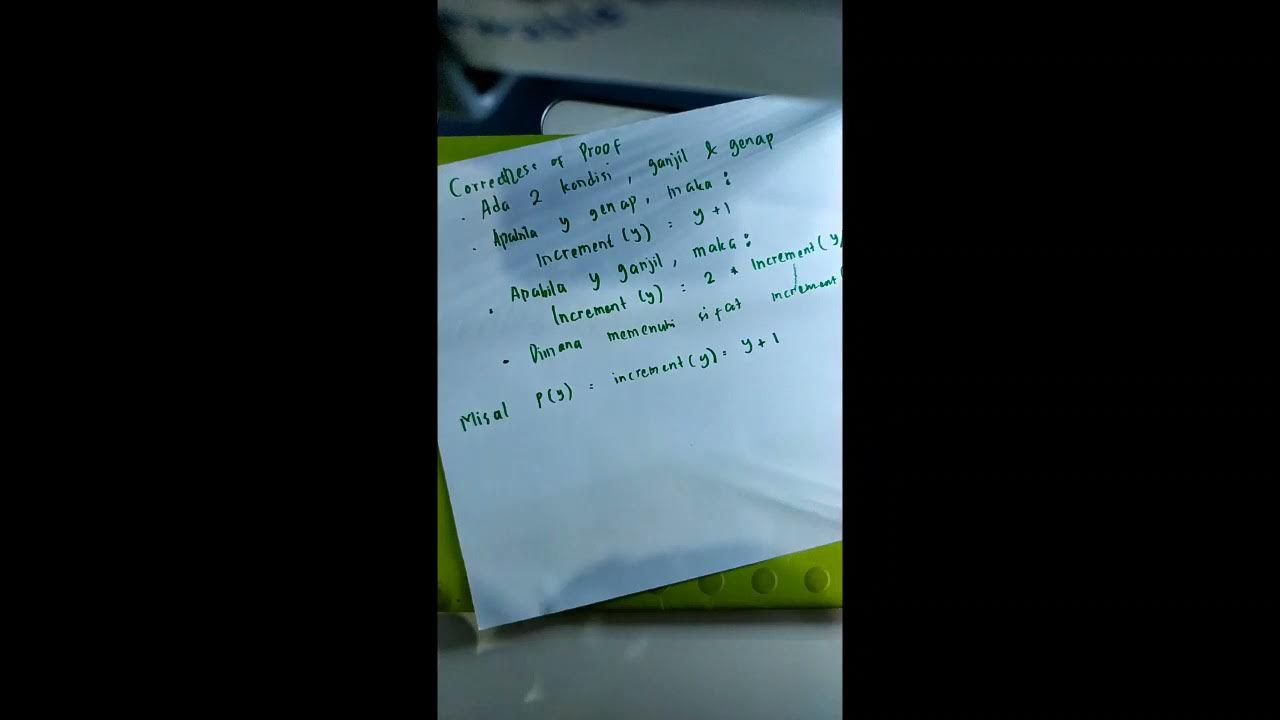 Correctness of Proof
· Ada 2 kondisi, ganjil & genap
· Apabila y genap, maka:
Increment (y) = y + 1
· Apabila y ganjil, maka:
Increment (y) = 2 * Increment (y/
· Dimana memenuhi sifat increment(
Misal P(y) = increment(y) = y + 1